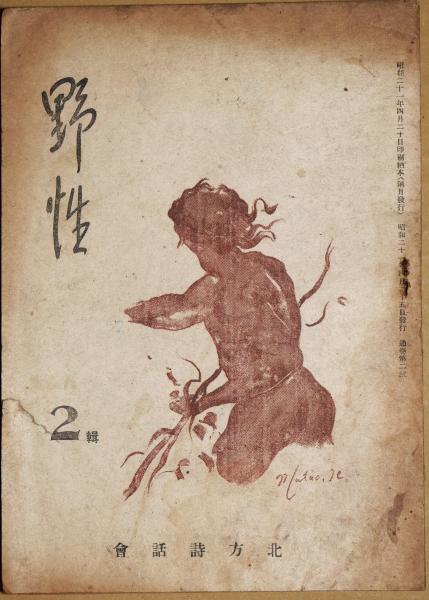 野性
2輯
昭和二十一年四月二十日印刷納本(隔月發行) 昭和二十 五日發行 通卷第二號
北方詩話會